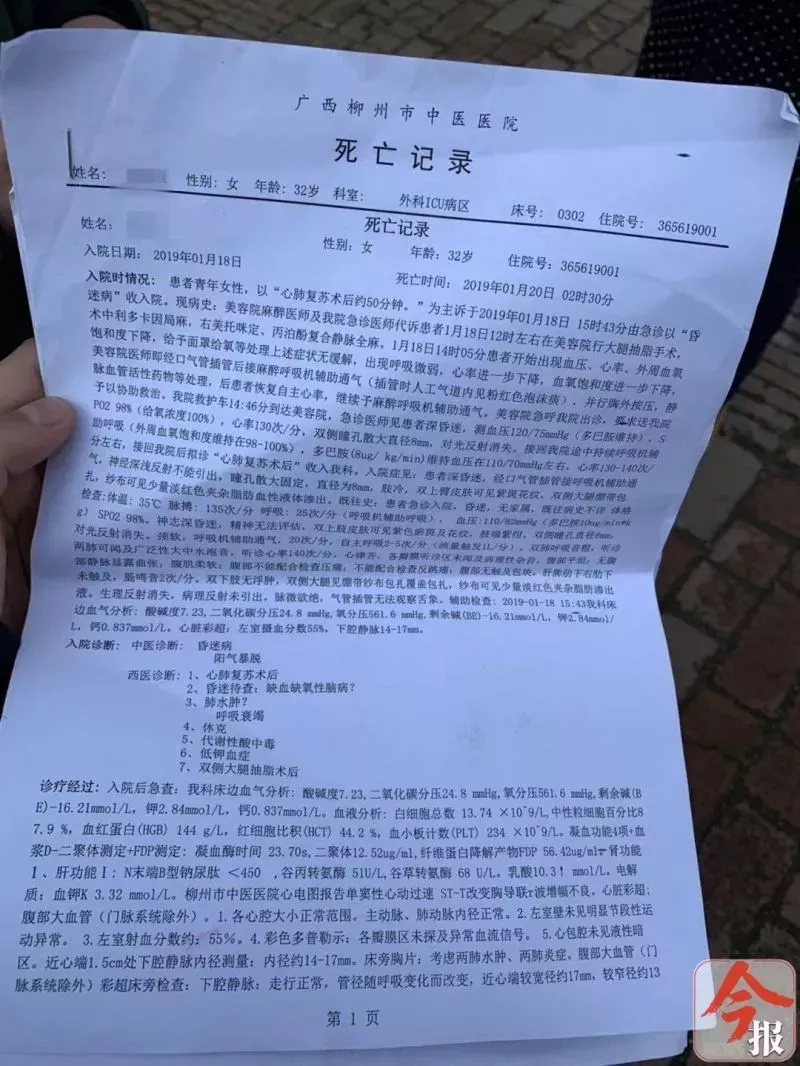 广西柳州市中医医院
死亡记录
姓名: 性别: 女 年龄: 32岁 科室: 外科ICU病区 床号: 0302 住院号: 365619001
死亡记录
姓名: 性别: 女 年龄: 32岁 住院号: 365619001
入院日期: 2019年01月18日 死亡时间: 2019年01月20日 02时30分
入院时情况: 患者青年女性, 以“心肺复苏术后约50分钟。”为主诉于2019年01月18日 15时43分由急诊以“昏
迷病”收入院。现病史: 美容院麻醉医师及我院急诊医师代诉患者1月18日12时左右在美容院行大腿抽脂手术,
术中利多卡因局麻, 右美托咪定、丙泊酚复合静脉全麻。1月18日14时05分患者开始出现血压、心率、外周血氧
饱和度下降, 给予面罩给氧等处理上述症状无缓解, 出现呼吸微弱, 心率进一步下降, 血氧饱和度进一步下降,
美容院医师即经口气管插管后接麻醉呼吸机辅助通气(插管时人工气道内见粉红色泡沫痰), 并行胸外按压, 静
脉血管活性药物等处理, 后患者恢复自主心率, 继续予麻醉呼吸机辅助通气。美容院急呼我院出诊, 要求送我院
予以协助救治。我院救护车14:46分到达美容院, 急诊医师见患者深昏迷, 测血压120/75mmHg(多巴胺维持), S
PO2 98%(给氧浓度100%), 心率130次/分, 双侧瞳孔散大直径8mm, 对光反射消失。接回我院途中持续呼吸机辅
助呼吸(外周血氧饱和度维持在98-100%), 多巴胺(8ug/ kg/min)维持血压在110/70mmHg左右, 心率130-140次/
分左右, 接回我院后拟诊“心肺复苏术后”收入我科。入院症见: 患者深昏迷, 经口气管插管接呼吸机辅助呼
气, 神经深浅反射不能引出, 瞳孔散大固定, 直径为8mm, 肢冷, 双上臂皮肤可见紫斑花纹, 双侧大腿绷带包
扎, 纱布可见少量淡红色夹杂脂肪血性液体渗出。既往史: 患者急诊入院, 昏迷, 无家属, 既往病史不详 体格
检查:体温: 35℃ 脉搏: 135次/分 呼吸: 25次/分(呼吸机辅助呼吸), 血压:110/82mmHg(多巴胺10ug/min*k
g) SPO2 98%。神志深昏迷, 精神无法评估, 双上肢皮肤可见紫色瘀斑及花纹, 肢端紫绀, 双侧瞳孔直径8mm,
对光反射消失。颈软, 呼吸机辅助通气, 20次/分, 自主呼吸2-5次/分(流量触发1L/分), 双肺呼吸音粗, 听诊
两肺可闻及广泛性大中水泡音, 听诊心率140次/分, 心律齐, 各瓣膜听诊区未闻及病理性杂音。腹部平坦; 无腹
部静脉显露曲张; 腹肌柔软; 腹部不能配合检查压痛; 不能配合检查反跳痛; 腹部无触及包块。肝脾肋下右肋下
未触及, 肠鸣音2次/分。双下肢无浮肿, 双侧大腿见绷带纱布包扎覆盖包扎, 纱布可见少量淡红色夹杂脂肪渗出
液。生理反射消失, 病理反射未引出。脉微欲绝, 气管插管无法观察舌象。辅助检查: 2019-01-18 15:43我科床
边血气分析: 酸碱度7.23,二氧化碳分压24.8 mmHg,氧分压561.6 mmHg,剩余碱(BE)-16.21mmol/L, 钾2.84mmol/
L, 钙0.837mmol/L。心脏彩超: 左室摄血分数55%, 下腔静脉14-17mm。
入院诊断: 中医诊断: 昏迷病
阳气暴脱
西医诊断: 1、心肺复苏术后
2、昏迷待查: 缺血缺氧性脑病?
3、肺水肿?
呼吸衰竭
4、休克
5、代谢性酸中毒
6、低钾血症
7、双侧大腿抽脂术后
诊疗经过: 入院后急查: 我科床边血气分析: 酸碱度7.23,二氧化碳分压24.8 mmHg,氧分压561.6 mmHg,剩余碱(B
E)-16.21mmol/L, 钾2.84mmol/L, 钙0.837mmol/L。血液分析: 白细胞总数 13.74 ×10^9/L,中性粒细胞百分比8
7.9 %, 血红蛋白(HGB) 144 g/L, 红细胞比积(HCT) 44.2 %, 血小板计数(PLT) 234 ×10^9/L。凝血功能4项+血
浆D-二聚体测定+FDP测定: 凝血酶时间 23.70s,二聚体12.52ug/ml,纤维蛋白降解产物FDP 56.42ug/ml 肾功能
Ⅰ、肝功能Ⅰ: N末端B型钠尿肽 <450 ,谷丙转氨酶 51U/L,谷草转氨酶 68 U/L。乳酸10.3↑ mmol/L。电解
质: 血钾K 3.32 mmol/L。柳州市中医医院心电图报告单窦性心动过速 ST-T改变胸导联r波增幅不良。心脏彩超;
腹部大血管(门脉系统除外)。1.各心腔大小正常范围。主动脉、肺动脉内径正常。2.左室壁未见明显节段性运
动异常。 3.左室射血分数约: 55%。4.彩色多普勒示: 各瓣膜区未探及异常血流信号。5.心包腔未见液性暗
区。近心端1.5cm处下腔静脉内径测量: 内径约14-17mm。床旁胸片: 考虑两肺水肿、两肺炎症。腹部大血管(门
脉系统除外)彩超床旁检查: 下腔静脉: 走行正常, 管径随呼吸变化而改变, 近心端较宽径约17mm, 较窄径约13
第 1 页
今报